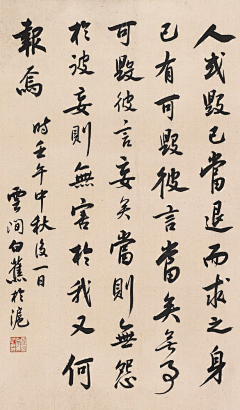 人或毀己當退而求之身
己有可毀彼言當矣無
可毀彼言妄矣當則無怨
於彼妄則無害於我又何
報焉 時壬午中秋後一日
雲間白蕉於滬